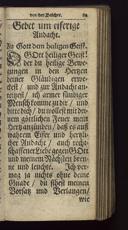 von der Beichte. 89
Gebet um eiferige
Andacht.
Zu Gott dem heiligen Geist.
O GOtt heiliger Geist!
der du heilige Bewe-
gungen in den Hertzen
deiner Gläubigen erwe-
ckest / und zur Andacht an-
treibest / ich armer sündiger
Mensch komme zu dir / und
bitte dich / du wollest mit dei-
nem göttlichen Feuer mein
Hertz anzünden / daß es mit
wahrem Eifer und hertzli-
cher Andacht / auch recht-
schaffener Liebe gegen GOtt
und meinem Nächsten bren-
ne und leuchte.
ja nichts ohne deine
Gnade / du
Vorsatz und Verlangen /
wie